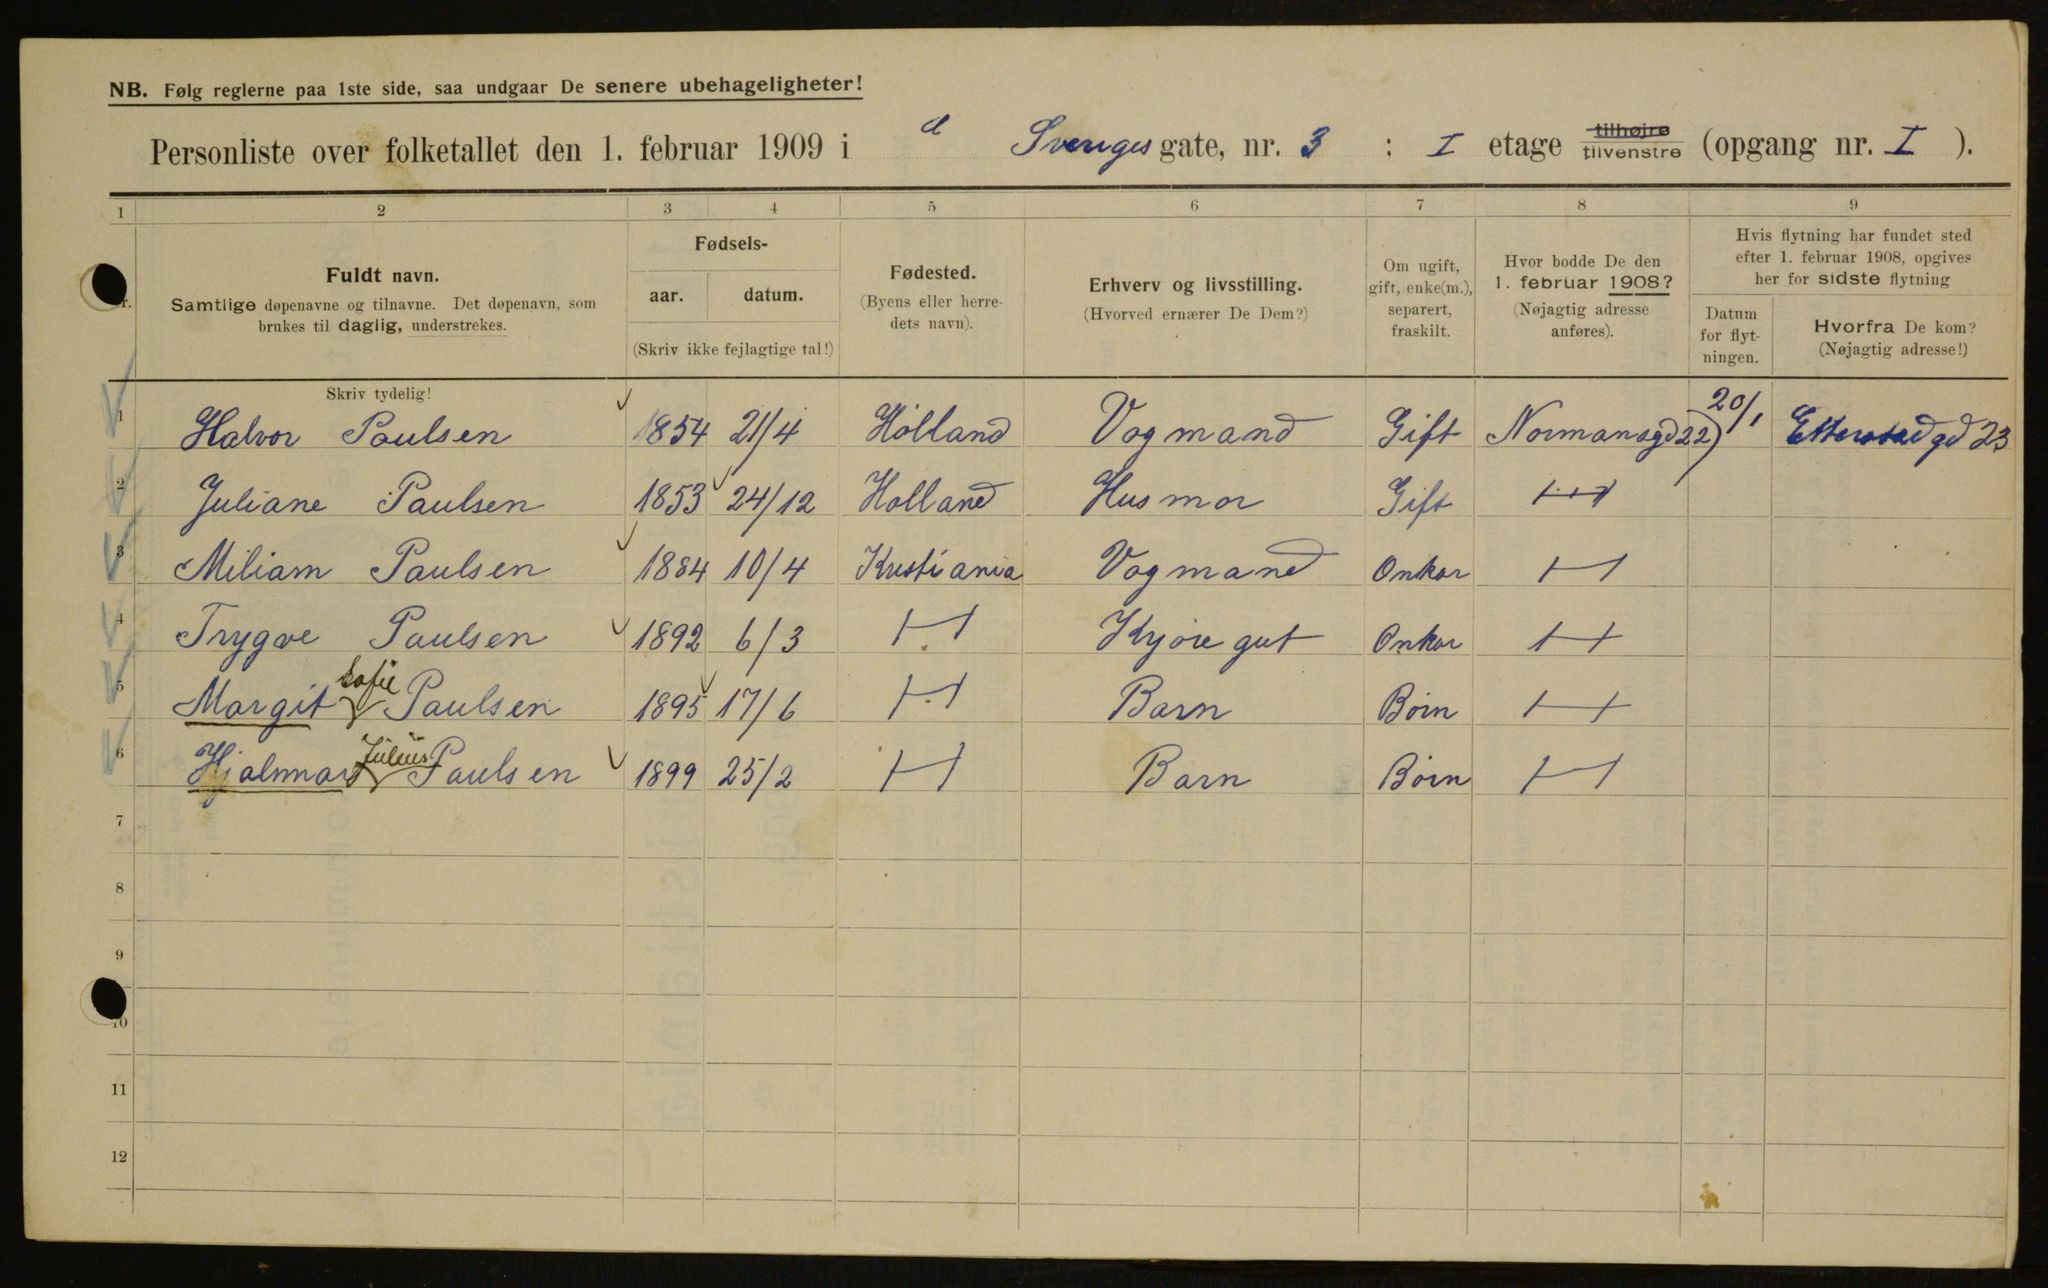 NB. Følg reglerne paa 1ste side, saa undgaar De senere ubehageligheter!
Personliste over folketallet den 1. februar 1909 i Sveriges gate, nr. 3 : I etage tilhøjre tilvenstre (opgang nr. I ).
1 2 3 4 5 6 7 8 9
Fuldt navn.
Samtlige døpenavne og tilnavne. Det døpenavn, som
brukes til daglig, understrekes.
Fødsels-
aar. datum.
(Skriv ikke fejlagtige tal!)
Fødested.
(Byens eller herre-
dets navn).
Erhverv og livsstilling.
(Hvorved ernærer De Dem?)
Om ugift,
gift, enke(m.),
separert,
fraskilt.
Hvor bodde De den
1. februar 1908?
(Nøjagtig adresse
anføres).
Hvis flytning har fundet sted
efter 1. februar 1908, opgives
her for sidste flytning
Datum
for flyt-
ningen.
Hvorfra De kom?
(Nøjagtig adresse!)
Skriv tydelig!
1 Halvor Paulsen 1854 21/4 Holland Vogmand Gift Normansgd 22 20/1 Etterstad gd 23
2 Juliane Paulsen 1853 24/12 Holland Husmor Gift
3 Miliam Paulsen 1884 10/4 Kristiania Vogmand Onkar
4 Trygve Paulsen 1892 6/3 Kjøre gut Onkar
5 Margit Sofie Paulsen 1895 17/6 Barn Børn
6 Hjalmar Julius Paulsen 1899 25/2 Barn Børn
7
8
9
10
11
12